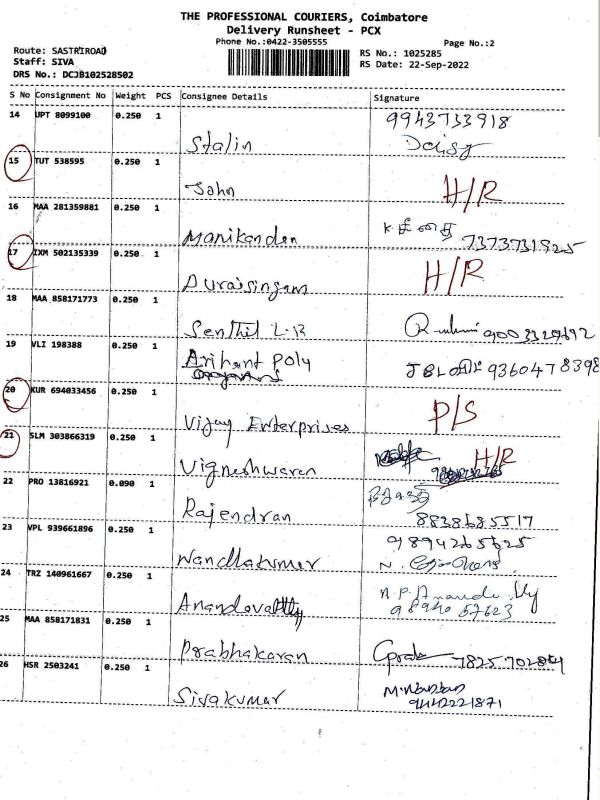 THE PROFESSIONAL COURIERS, Coimbatore
Delivery Runsheet - PCX
Phone No.:0422-3505555
Page No.:2
Route: SASTRIROAD
Staff: SIVA
DRS No.: DCJB102528502
RS No.: 1025285
RS Date: 22-Sep-2022
S No Consignment No Weight PCS Consignee Details Signature
14 UPT 8099100 0.250 1 9943733918
Stalin Daisy
15 TUT 538595 0.250 1
John H/R
16 MAA 281359881 0.250 1
Manikandan 7373731925
17 IXM 502135339 0.250 1
Duraisingam H/R
18 MAA 858171773 0.250 1
Senthil L.R 9003329692
19 VLI 198388 0.250 1
Arihant Poly 9360478398
20 KUR 694033456 0.250 1
Vijay Enterprises P/S
21 SLM 303866319 0.250 1
Vigneshwaran H/R
22 PRO 13816921 0.090 1
Rajendran 8838685517
23 VPL 939661896 0.250 1 9894265625
Nandhakumar N.
24 TRZ 140961667 0.250 1
Anandavally
25 MAA 858171831 0.250 1
Prabhakaran
26 HSR 2503241 0.250 1
Sivakumar 9442221871